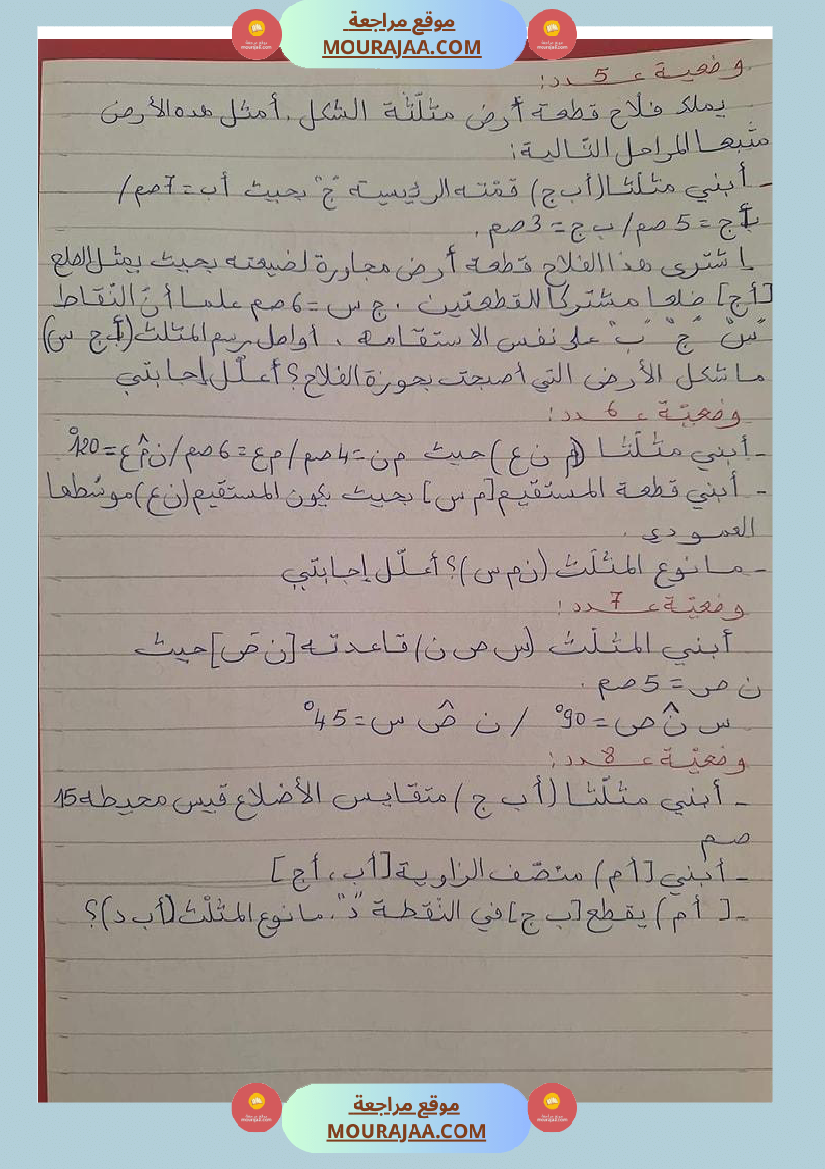 موقع مراجعة
MOURAJAA.COM
وضعية عـ5ـدد:
يملك فلاح قطعة أرض مثلّثة الشكل. أمثل هذه الأرض
متّبعا المراحل التّالية:
- أبني مثلّثا (أ ب ج) قمّته الرئيسية "ج" بحيث أب = 7صم /
أج = 5 صم / ب ج = 3صم.
اشترى هذا الفلاح قطعة أرض مجاورة لضيعته بحيث يمثل الضلع
[أج] ضلعا مشتركا للقطعتين. ج س = 6 صم علما أنّ النّقاط
"س" "ج" "ب" على نفس الاستقامة. أواصل رسم المثلث (أ ج س)
ما شكل الأرض التي أصبحت بحوزة الفلاح؟ أعلّل إجابتي
وضعيّة عـ6ـدد:
- أبني مثلّثا (م ن ع) حيث م ن = 4صم / م ع = 6 صم / ن م̂ ع = 120°
- أبني قطعة المستقيم [م س] بحيث يكون المستقيم (ن ع) موسّطها
العمودي.
- ما نوع المثلّث (ن م س)؟ أعلّل إجابتي
وضعيّة عـ7ـدد:
أبني المثلّث (س ص ن) قاعدته [ن ص] حيث
ن ص = 5 صم.
س ن̂ ص = 90° / ن ص̂ س = 45°
وضعيّة عـ8ـدد:
- أبني مثلّثا (أ ب ج) متقايس الأضلاع قيس محيطه 15
صم
- أبني [أم) منصّف الزاوية [أب ، أج]
- [أم) يقطع [ب ج] في النّقطة "د". ما نوع المثلّث (أ ب د)؟
موقع مراجعة
MOURAJAA.COM